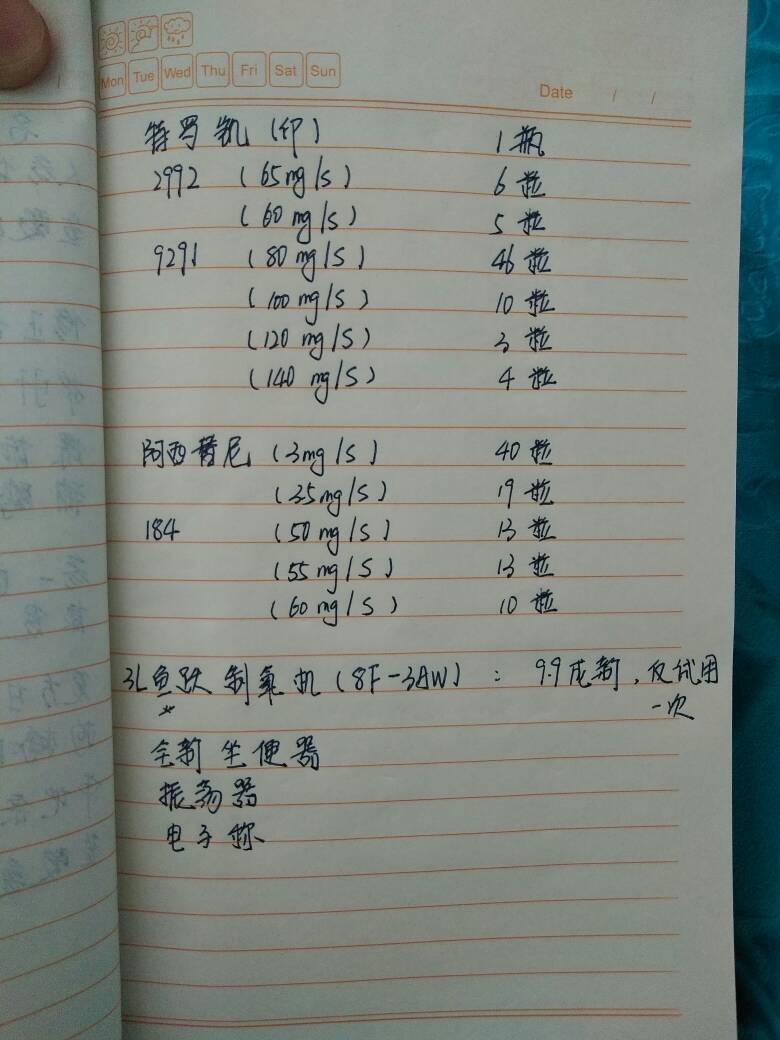 Mon Tue Wed Thu Fri Sat Sun
Date / /
特罗凯 (印) 1瓶
2992 (65mg/S) 6粒
(60mg/S) 5粒
9291 (80mg/S) 46粒
(100mg/S) 10粒
(120mg/S) 3粒
(140mg/S) 4粒
阿西替尼 (3mg/S) 40粒
(35mg/S) 19粒
184 (50mg/S) 13粒
(55mg/S) 13粒
(60mg/S) 10粒
3L鱼跃制氧机 (8F-3AW) : 9.9成新, 仅试用
一次
全新坐便器
振荡器
电子称